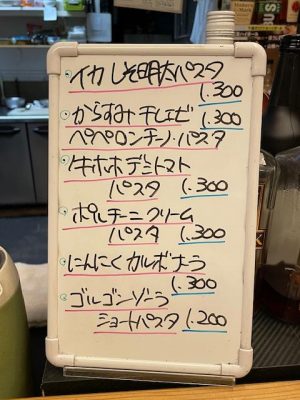 イカしそ明太パスタ
1.300
からすみ干しエビ
1.300
ペペロンチーノ・パスタ
牛ホホデミトマト
パスタ 1.300
ポルチーニクリーム
パスタ 1.300
にんにくカルボナーラ
1.300
ゴルゴンゾーラ
ショートパスタ 1.200